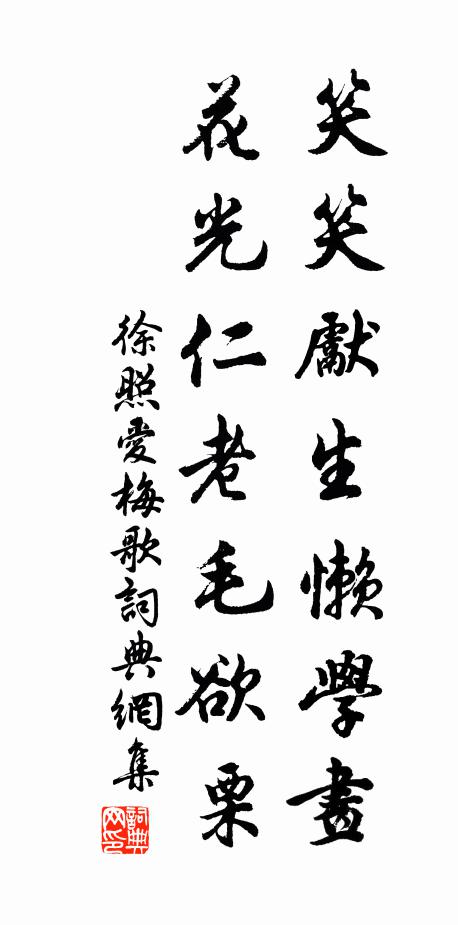 笑笑獻生懶學畫
花光仁老毛欲栗
徐照愛梅歌詞典網集
詞典网印